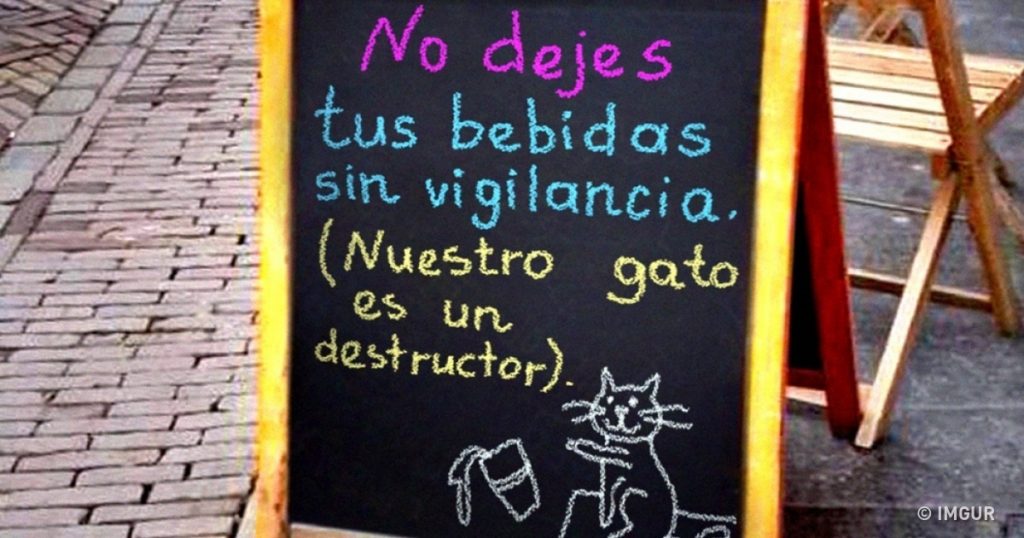 No dejes
tus bebidas
sin vigilancia.
(Nuestro gato
es un
destructor).
© IMGUR